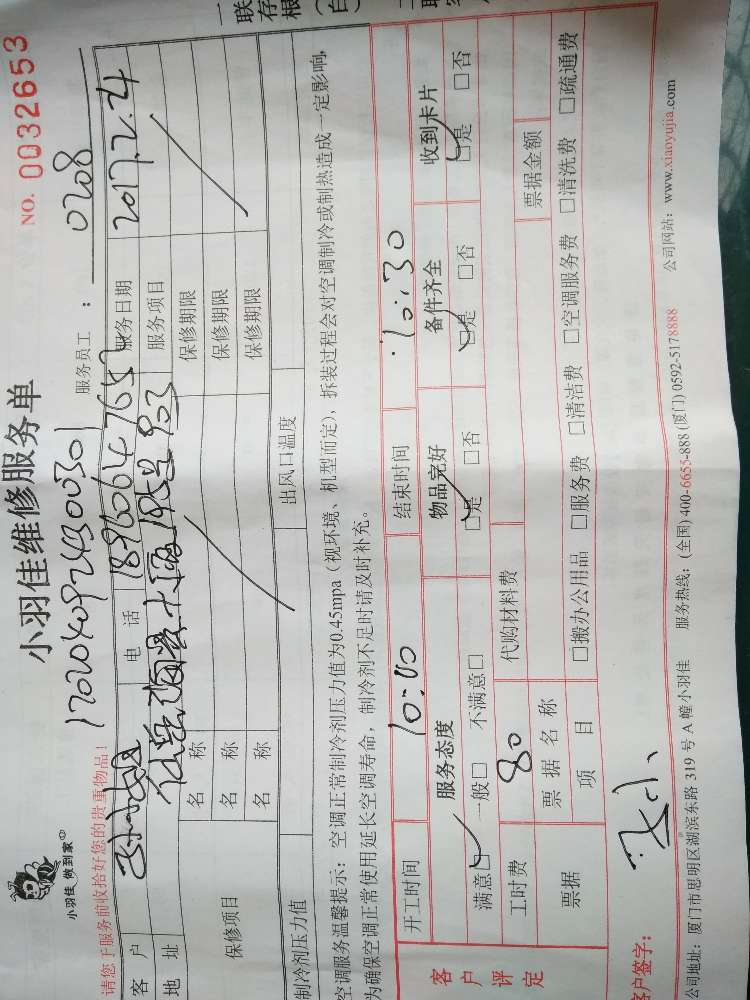 一联
存根
(白
小羽佳维修服务单
NO. 0032653
小羽佳 做到家
17020409243 00301
请您于服务前收拾好您的贵重物品!
服务员工: 0208
客户
电话 18960647657
服务日期 2017.2.4
地址
903
服务项目
保修项目
名称
保修期限
名称
保修期限
名称
保修期限
制冷剂压力值
出风口温度
空调服务温馨提示:空调正常制冷剂压力值为0.45mpa(视环境、机型而定),拆装过程会对空调制冷或制热造成一定影响,
为确保空调正常使用延长空调寿命,制冷剂不足时请及时补充。
开工时间 10:00 结束时间 10:30
客户评定
服务态度 物品完好 备件齐全 收到卡片
满意☑ 一般□ 不满意□ ☑是 □否 ☑是 □否 ☑是 □否
工时费 80 代购材料费
票据 票据名称 票据金额
项目 □搬办公用品 □服务费 □清洁费 □空调服务费 □清洗费 □疏通费
客户签字:
公司地址:厦门市思明区湖滨东路 319 号 A 幢小羽佳 服务热线:(全国) 400-6655-888 (厦门) 0592-5178888 公司网站:www.xiaoyujia.com